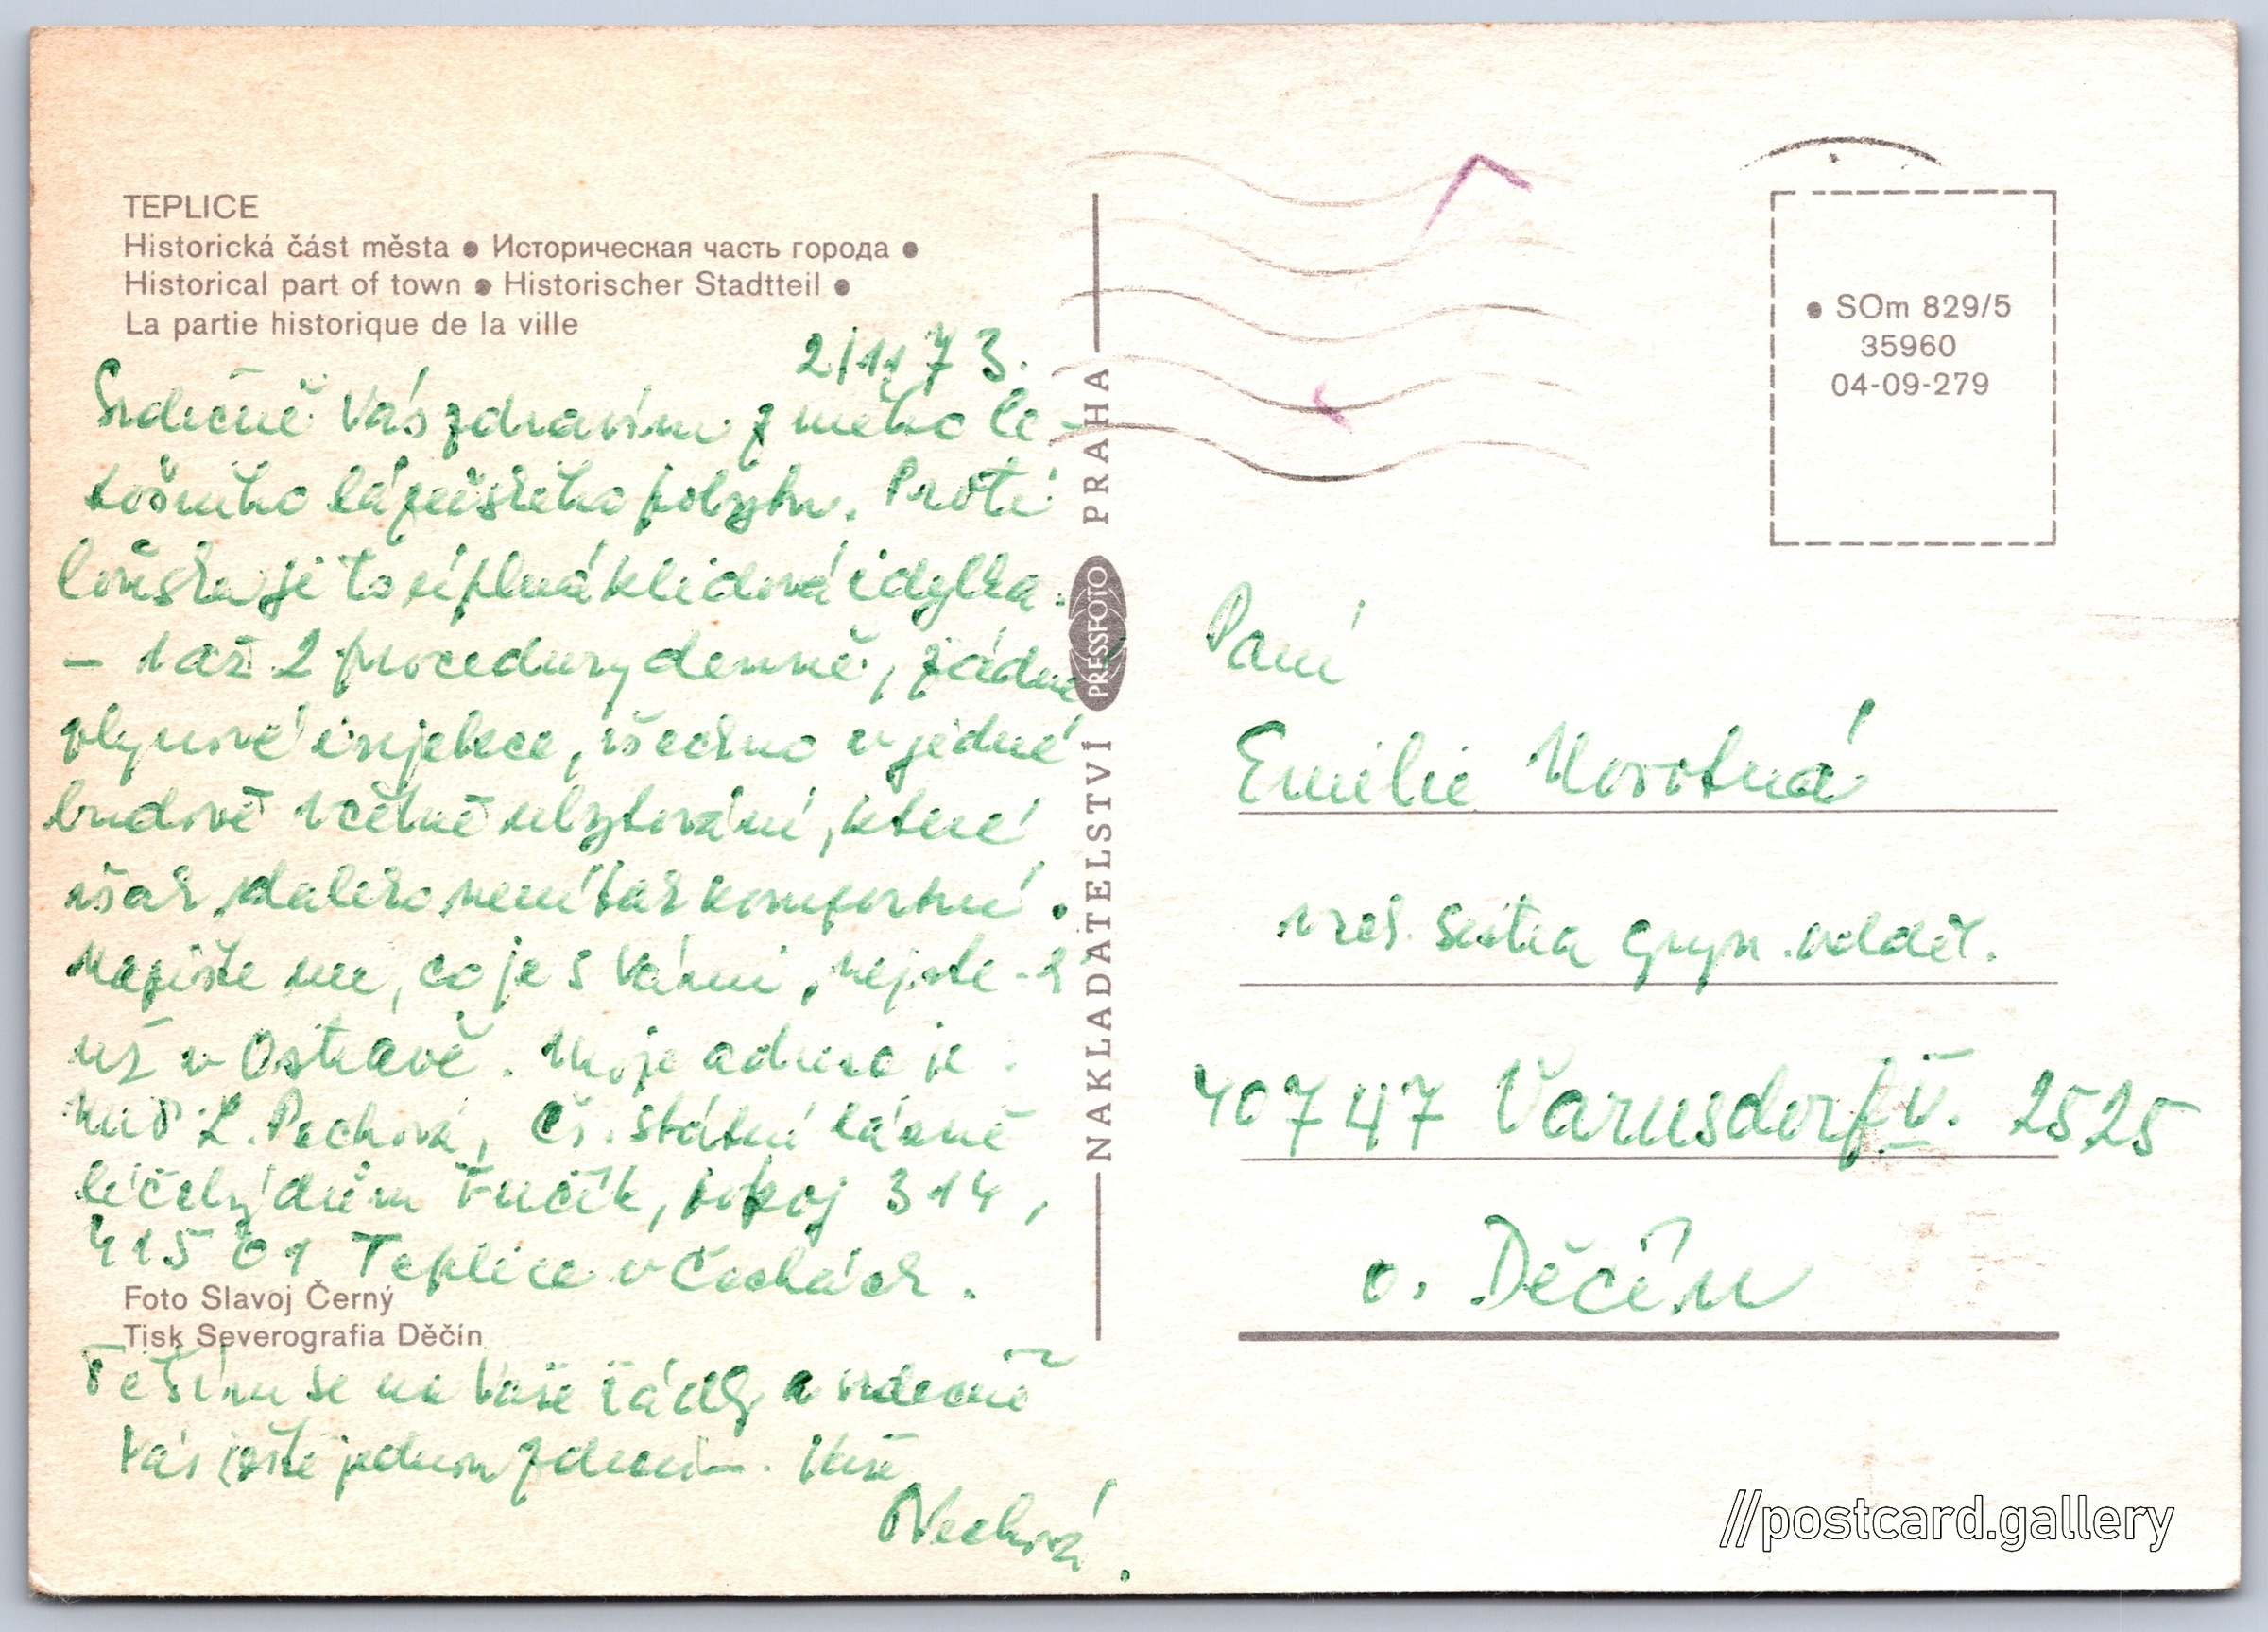 TEPLICE
Historická část města ● Историческая часть города ●
Historical part of town ● Historischer Stadtteil ●
La partie historique de la ville
2/11 73.
Srdečně Vás zdravím z mého le-
tošního lázeňského pobytu. Proti
loňsku je to úplná klidová idylka.
– 1 až 2 procedury denně, žádné
plynové injekce, všechno v jedné
budově včetně ubytování, které
však daleko není tak komfortní.
Napište mi, co je s Vámi, nejste-li
už v Ostravě. Moje adresa je:
L. Pechová, Čs. státní lázně
léčebný dům Fučík, pokoj 314,
415 01 Teplice v Čechách.
Foto Slavoj Černý
Tisk Severografia Děčín
Těším se na Vaše řádky a srdečně
Vás ještě jednou zdravím. Vaše
Pechová.
NAKLADATELSTVÍ PRESSFOTO PRAHA
● SOm 829/5
35960
04-09-279
Paní
Emilie Novotná
sestra gyn. odděl.
40747 Varnsdorf V. 2525
o. Děčín
//postcard.gallery